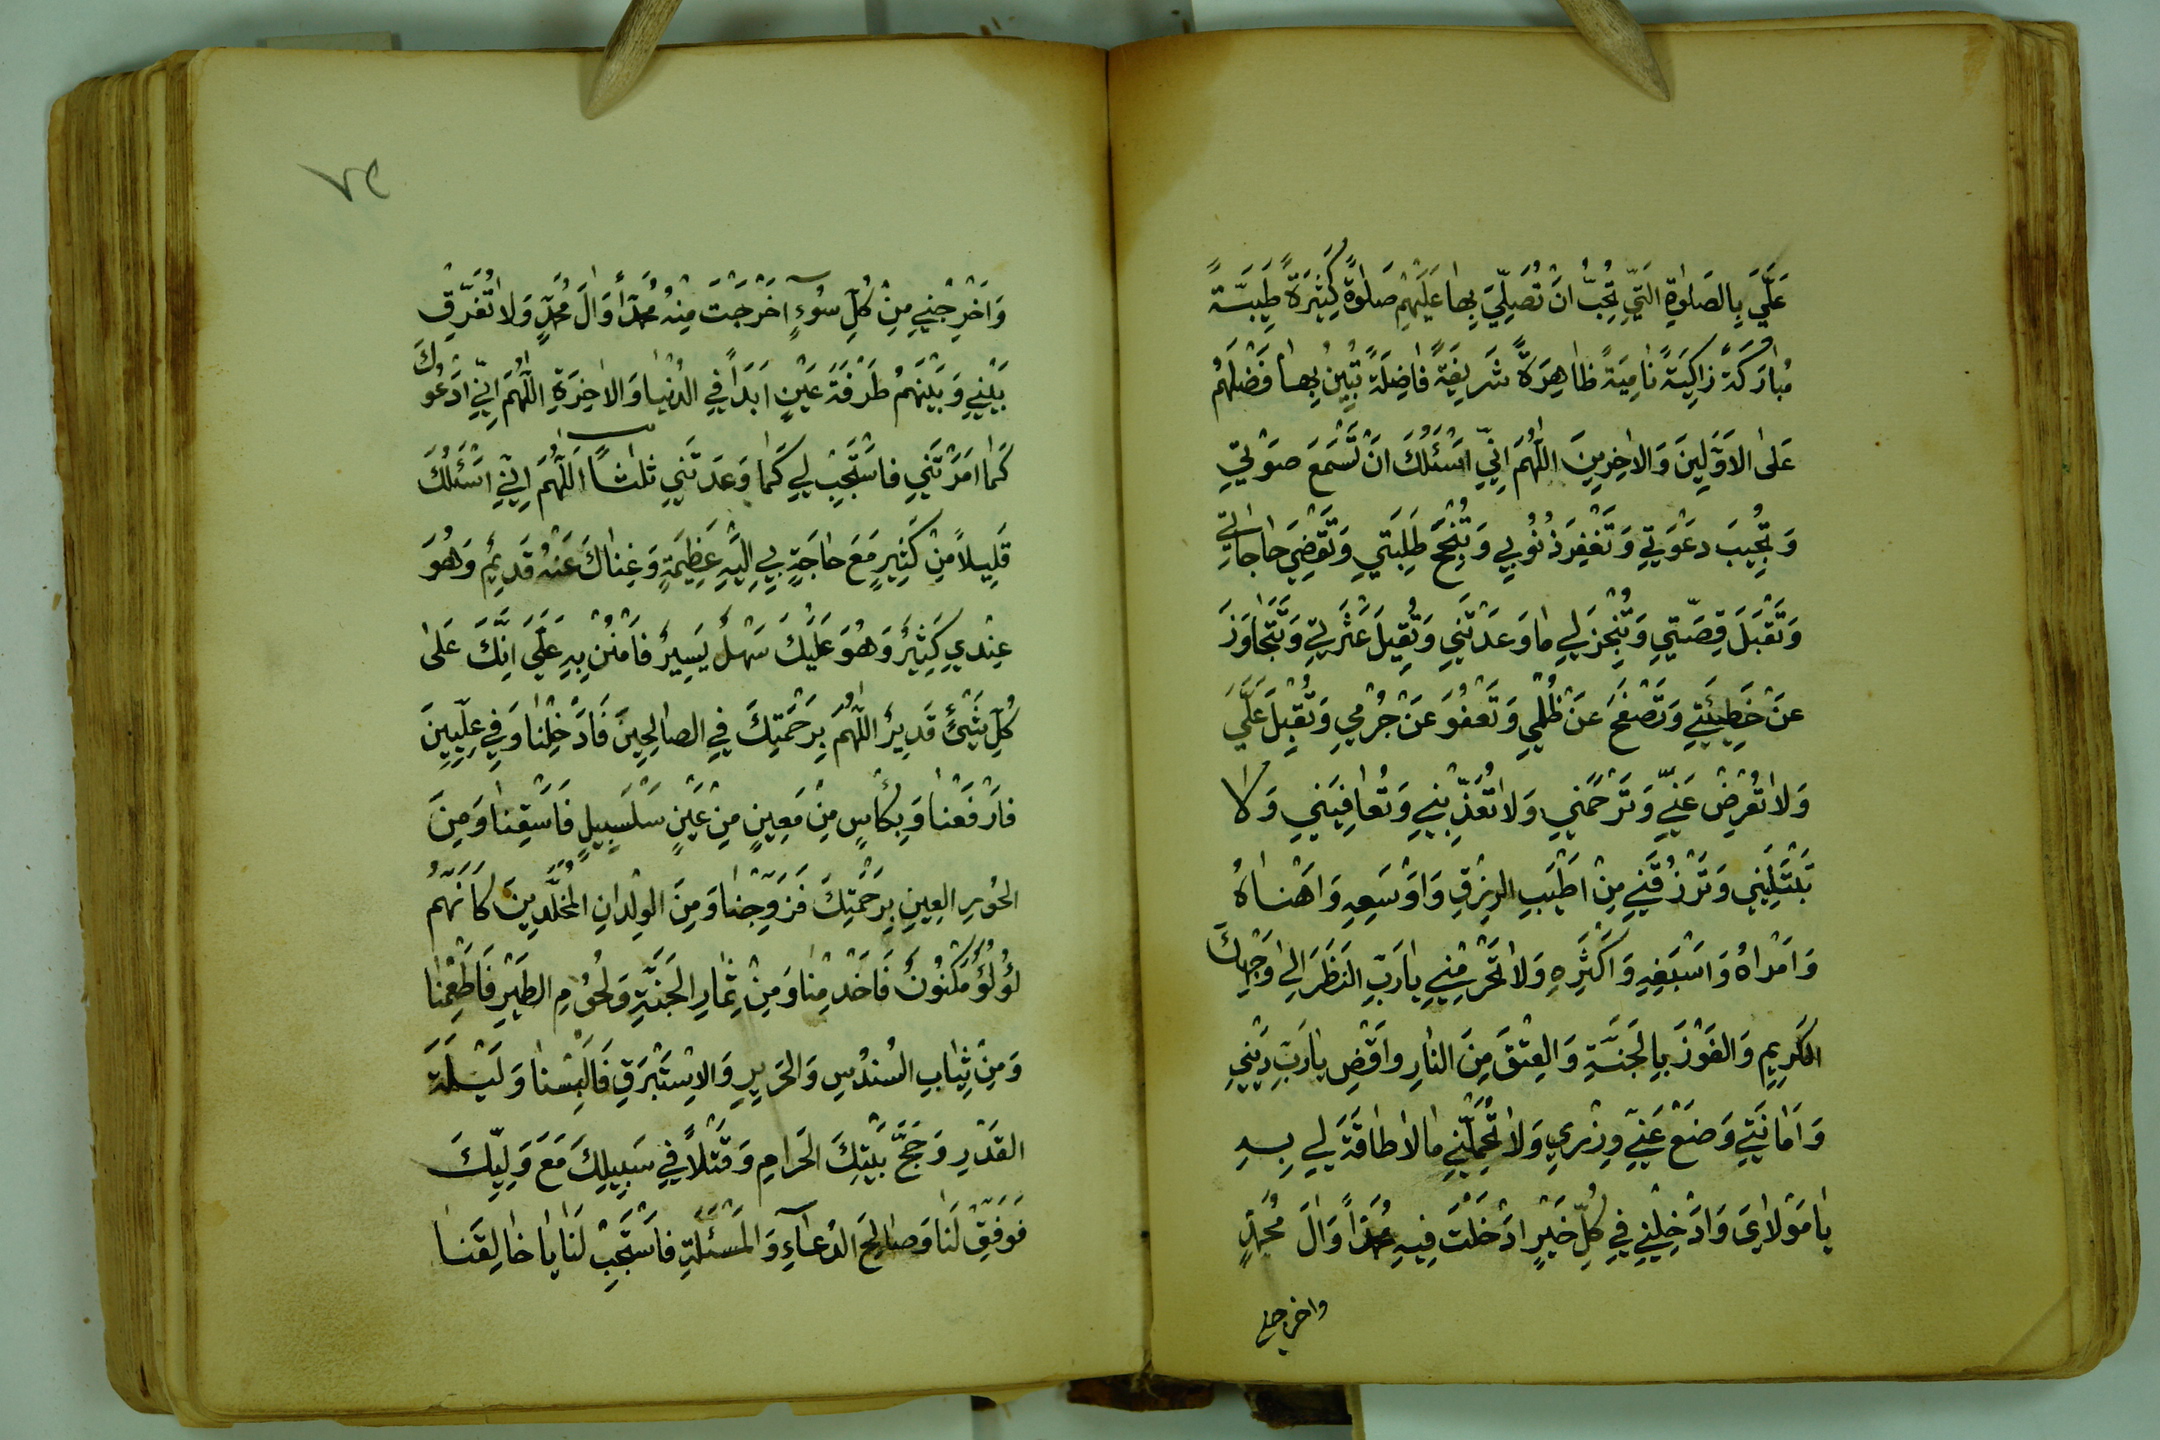 عَلَيَّ بِالصَلوٰةِ الَتّي تُحِبُّ اَنْ تُصَلِّيَ بِها عَلَيْهِمْ صَلوٰةً كَثيرَةً طَيِبَّةً
مُبارَكَةً زاكِيَةً نامِيَةً ظاهِرَةً شَريفَةً فاضِلَةً تُبينُ بِها فَضْلَهُمْ
عَلىَ الاَوَّلينَ وَالاٰخِرينَ اللّٰهُمَّ اِنّي اَسْئَلُكَ اَنْ تَسْمَعَ صَوْتي
وَ تُجيبَ دَعْوَتي وَ تَغْفِرَ ذُنُوبي وَ تُنْجِحَ طَلِبَتي وَ تَقْضِيَ حاجاتي
وَ تَقْبَلَ قِصَّتي وَ تُنْجِزَ لي ما وَعَدْتَني وَ تُقيلَ عَثْرَتي وَ تَتَجاوَزَ
عَنْ خَطيئَتي وَ تَصْفَحَ عَنْ ظُلْمي وَ تَعْفُوَ عَنْ جُرْمي وَ تُقْبِلَ عَلَيَّ
وَلا تُعْرِضْ عَنّي وَ تَرْحَمَني وَلا تُعَذِّبْني وَ تُعافِيَني وَلا
تَبْتَلِيَني وَ تَرْزُقَني مِنْ اَطْيَبِ الرِزْقِ وَ اَوْسَعِهِ وَ اَهْناهُ
وَ اَمْراهُ وَ اَسْبَغِهِ وَ اَكْثَرِهِ وَلا تَحْرِمْني يا رَبِّ النَظَرَ اِلىٰ وَجْهِكَ
الكَريمِ وَ الفَوْزَ بِالجَنَّةِ وَ العِتْقَ مِنَ النارِ وَ اقْضِ يا رَبِّ دَيْني
وَ اَمانَتي وَ ضَعْ عَنّي وِزْري وَلا تُحَمِّلْني ما لا طاقَةَ لي بِهِ
يا مَوْلايَ وَ اَدْخِلْني في كُلِّ خَيْرٍ اَدْخَلْتَ فيهِ مُحَمَّداً وَ اٰلَ مُحَمَّدٍ
واخرجنى
٧٢
وَ اَخْرِجْني مِنْ كُلِّ سُوءٍ اَخْرَجْتَ مِنْهُ مُحَمَّداً وَ الَ مُحَمَّدٍ وَلا تُفَرِّقْ
بَيْني وَ بَيْنَهُمْ طَرْفَةَ عَيْنٍ اَبَدَاً فِي الدُنْيا وَ الاٰخِرَةِ اللّٰهُمَّ اِنّي اَدْعُوكَ
كَما اَمَرْتَني فاسْتَجِبْ لي كَما وَعَدْتَني ثلثاً اَللّٰهُمَّ اِنّي اَسْئَلُكَ
قَليلاً مِنْ كَثيرٍ مَعَ حاجَةٍ بي اِلَيْهِ عَظيمَةٍ وَ غِناكَ عَنْهُ قَديمٌ وَ هُوَ
عِنْدي كَثيرٌ وَ هُوَ عَلَيْكَ سَهْلٌ يَسيرٌ فامْنُنْ بِهِ عَلَيَّ اِنَّكَ عَلىٰ
كُلِّ شَيْئٍ قَديرٌ اللّٰهُمَّ بِرَحْمَتِكَ فِي الصالِحينَ فَاَدْخِلْنا وَ في عِلِّيينَ
فارْفَعْنا وَ بِكَأْسٍ مِنْ مَعينٍ مِنْ عَيْنٍ سَلْسَبيلٍ فَاسْقِنا وَ مِنَ
الحُورِ العينِ بِرَحْمَتِكَ فَزَوِّجْنا وَ مِنَ الوِلْدانِ المُخَلَّدينَ كَاَنَّهُمْ
لُؤْلُؤٌ مَكْنُونٌ فَاَخْدِمْنا وَ مِنْ ثِمارِ الجَنَّةِ وَ لُحُومِ الطَيْرِ فَاَطْعِمْنا
وَ مِنْ ثِيابِ السُنْدُسِ وَ الحَريرِ وَ الاِسْتَبْرَقِ فَاَلْبِسْنا وَ لَيْلَةَ
القَدْرِ وَ حَجَّ بَيْتِكَ الحَرامِ وَ قَتْلاً في سَبيلِكَ مَعَ وَلِيِّكَ
فَوَفِّقْ لَنا وَ صالِحَ الدُعآءِ وَ المَسْئَلَةِ فاسْتَجِبْ لَنا يا خالِقَنا